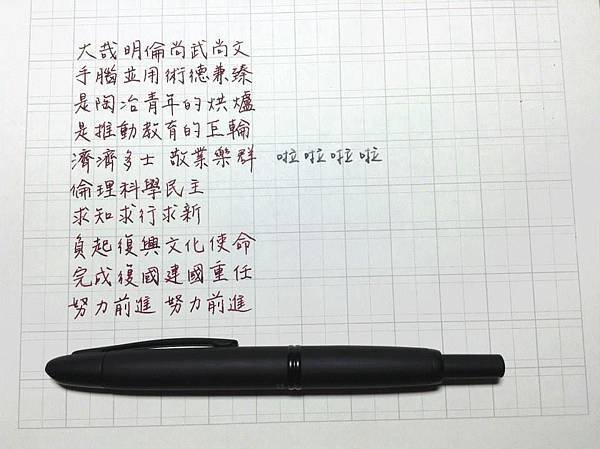 大哉明倫尚武尚文
手腦並用術德兼臻
是陶冶青年的烘爐
是推動教育的巨輪
濟濟多士 敬業樂群 啦啦啦啦
倫理科學民主
求知求行求新
負起復興文化使命
完成復國建國重任
努力前進 努力前進